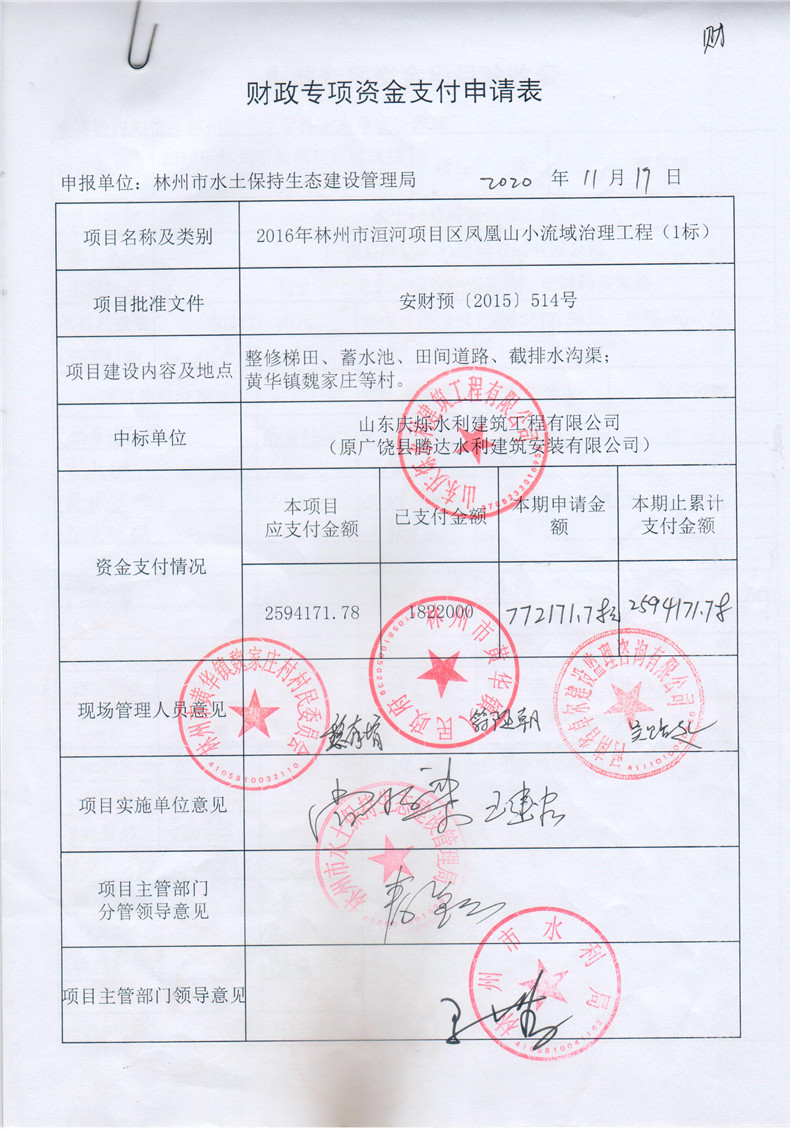 财
财政专项资金支付申请表
申报单位：林州市水土保持生态建设管理局 2020 年 11 月 19 日
项目名称及类别 2016年林州市洹河项目区凤凰山小流域治理工程（1标）
项目批准文件 安财预〔2015〕514号
项目建设内容及地点 整修梯田、蓄水池、田间道路、截排水沟渠；
黄华镇魏家庄等村。
中标单位 山东庆烁水利建筑工程有限公司
（原广饶县腾达水利建筑安装有限公司）
资金支付情况
本项目
应支付金额
已支付金额
本期申请金
额
本期止累计
支付金额
2594171.78 1822000 772171.78 2594171.78
林州市黄华镇人民政府
林州市黄华镇魏家庄村村民委员会
4105810032110
现场管理人员意见
项目实施单位意见
林州市水土保持生态建设管理局
项目主管部门
分管领导意见
项目主管部门领导意见
林州市水利局